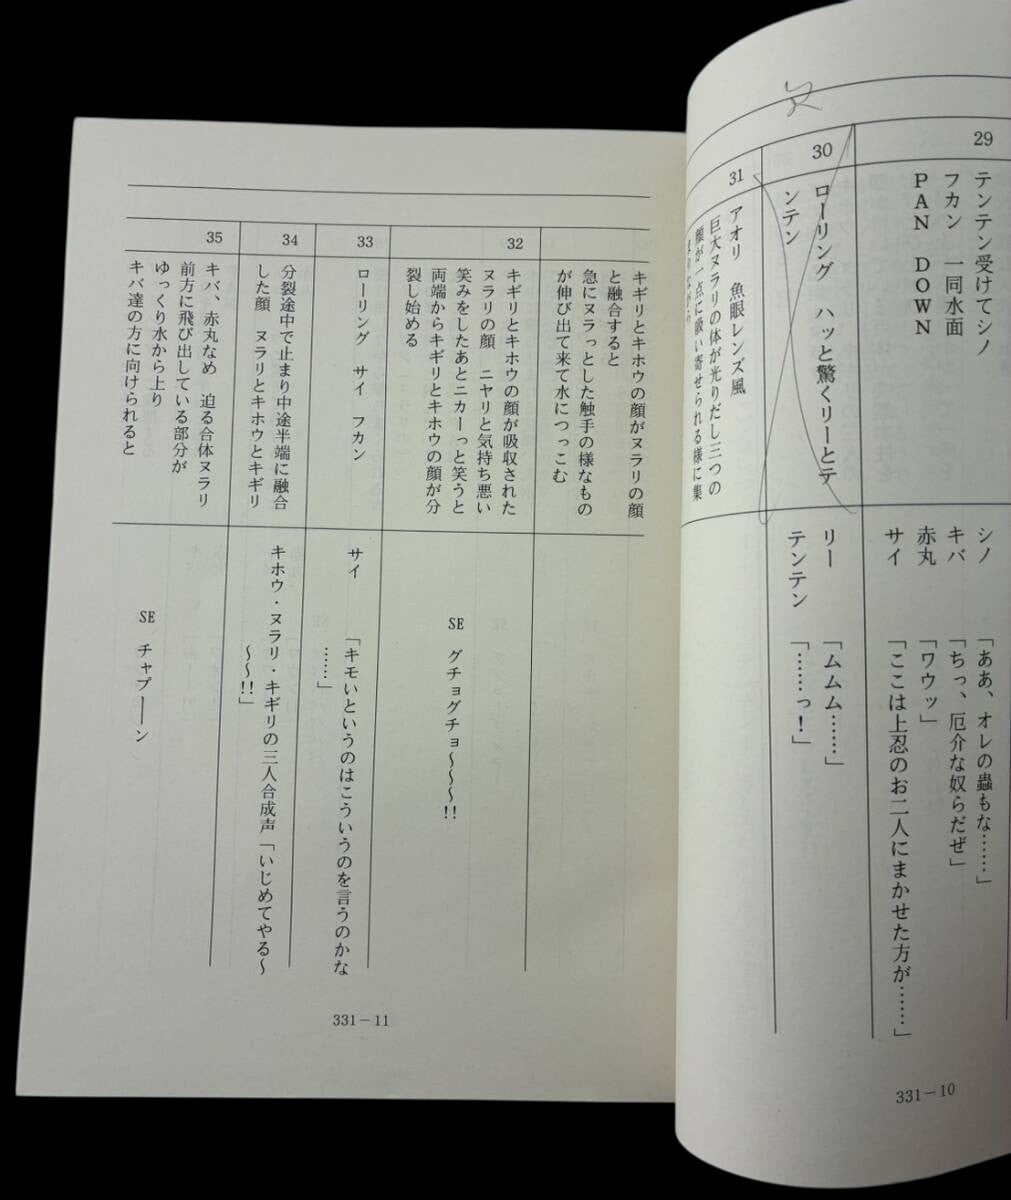 29
テンテン受けてシノ
フカン　一同水面
PAN DOWN
シノ　「ああ、オレの蟲もな……」
キバ　「ちっ、厄介な奴らだぜ」
赤丸　「ワウッ」
サイ　「ここは上忍のお二人にまかせた方が……」
30
ローリング　ハッと驚くリーとテ
ンテン
リー　「ムムム……」
テンテン　「……っ！」
31
アオリ　魚眼レンズ風
巨大ヌラリの体が光りだし三つの
顔が一点に吸い寄せられる様に集
まりながら
331－10
キギリとキホウの顔がヌラリの顔
と融合すると
急にヌラっとした触手の様なもの
が伸び出て来て水につっこむ
32
キギリとキホウの顔が吸収された
ヌラリの顔　ニヤリと気持ち悪い
笑みをしたあとニカーっと笑うと
両端からキギリとキホウの顔が分
裂し始める
SE　グチョグチョ～～～!!
33
ローリング　サイ　フカン
サイ　「キモいというのはこういうのを言うのかな
……」
34
分裂途中で止まり中途半端に融合
した顔　ヌラリとキホウとキギリ
キホウ・ヌラリ・キギリの三人合成声「いじめてやる～
～～!!」
35
キバ、赤丸なめ　迫る合体ヌラリ
前方に飛び出している部分が
ゆっくり水から上り
キバ達の方に向けられると
SE　チャプ――ン
331－11